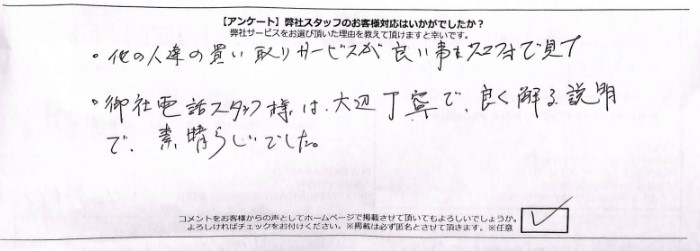 【アンケート】弊社スタッフのお客様対応はいかがでしたか？
弊社サービスをお選び頂いた理由を教えて頂けますと幸いです。
・他の人達の買い取りサービスが良い事を
で見て
・御社電話スタッフ様は、大辺丁寧で、良く解る説明
で、素晴らしいでした。
コメントをお客様からの声としてホームページで掲載させて頂いてもよろしいでしょうか。
よろしければチェックをお付けください。※掲載は必ず匿名とさせて頂きます。※任意